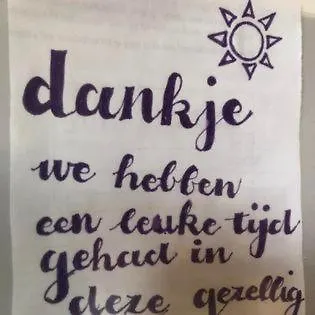 dankje
we hebben
een leuke tijd
gehad in
deze gezellig